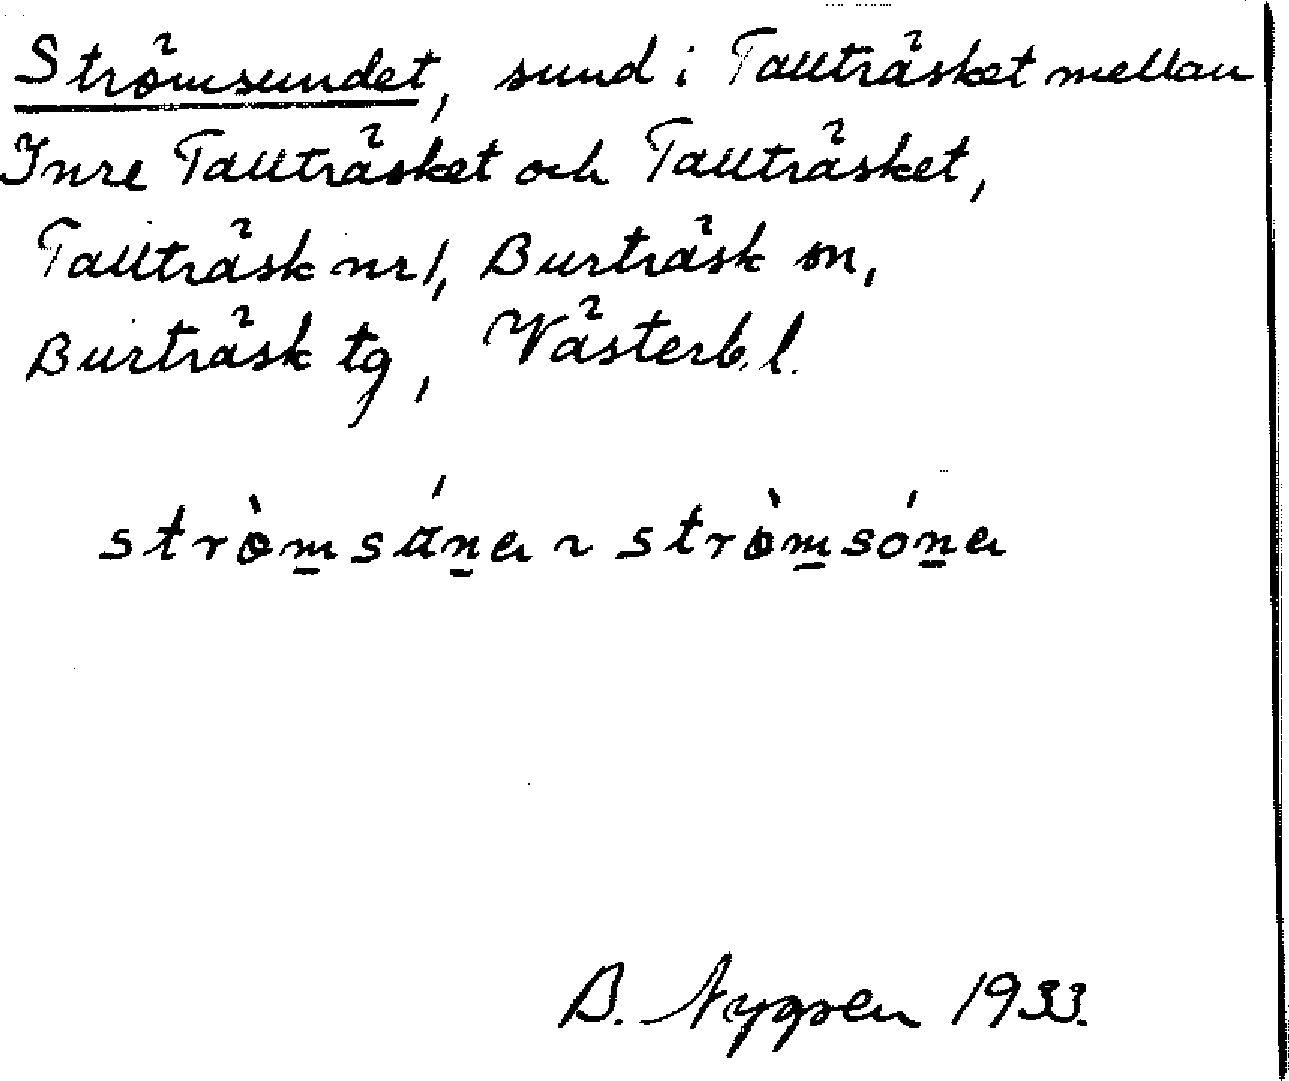 Strömsundet, sund i Tallträsket mellan
Inre Tallträsket och Tallträsket,
Tallträsk nr 1, Burträsk sn,
Burträsk tg, Västerb. l.
B. Nygren 1933.